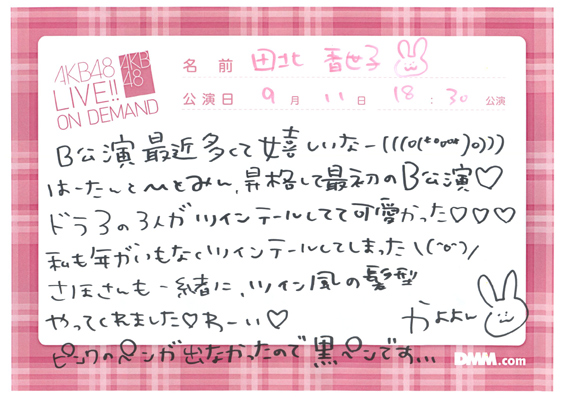 AKB48
LIVE!!
ON DEMAND
AKB
48
名前 田北 香世子
公演日 9月 11日 18:30 公演
B公演最近多くて嬉しいなー(((o(*°o°*)o)))
はーたんとひとみん、昇格して最初のB公演♡
ドラ3の3人がツインテールしてて可愛かった♡♡♡
私も年がいもなくツインテールしてしまった\(^o^)/
さほさんも一緒に、ツイン風の髪型
やってくれました♡わーい♡
かよよん
ピンクのペンが出なかったので黒ペンです...
DMM.com